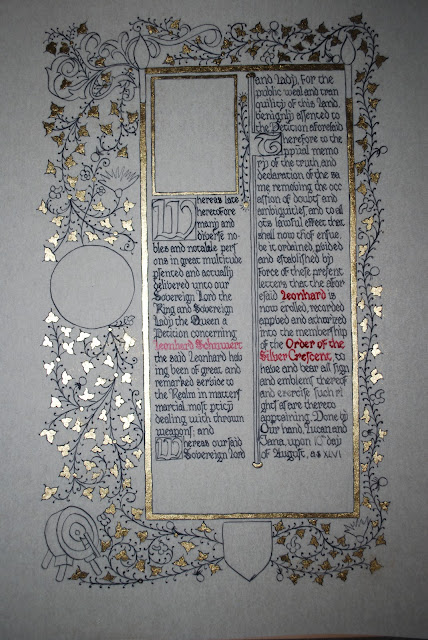 Whereas late
heretofore
many and
diverse no-
bles and notable pers
ons in great multitude
psented and actually
delivered unto our
Sovereign Lord the
King and Sovereign
Lady the Queen a
Petition concerning
Leonhard Schruwert
the said Leonhard hav
ing been of great and
remarked service to
the Realm in matters
martial most pticly
dealing with thrown
weapons: and
Whereas our said
Sovereign lord
and Lady, for the
public weal and tran
quility of this land,
benignly assented to
the Petition aforesaid
Therefore to the
ppual memo
ry of the truth, and
declaration of the sa
me removing the occ
assion of doubts and
ambiguities and to all
its lawful effect that
shall now thof ensue
be it ordained pvided
and established by
force of these present
letters that the afor
esaid Leonhard is
now erolled, recorded
appved and authorized
into the membership
of the Order of the
Silver Crescent, to
have and bear all sign
and emblems thereof
and exercise such ri
ghts as are thereto
apptaining. Done by
Our hand, Lucan and
Jana, upon day
of August, a.s XLVI